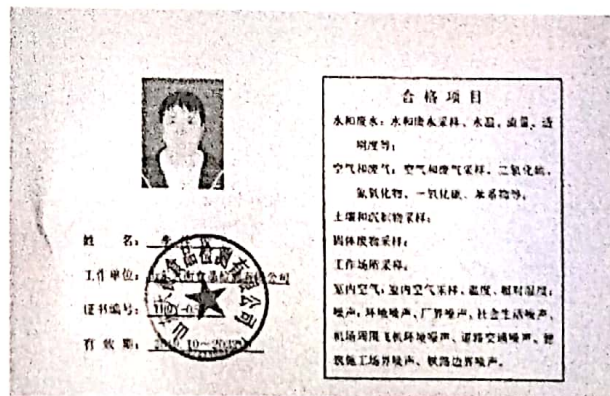 姓 名：李
工作单位：食品检测有限公司
证书编号：
有 效 期：
合格项目
水和废水：水和废水采样、水温、流量、透
明度等；
空气和废气：空气和废气采样、二氧化硫、
氮氧化物、一氧化碳、苯系物等；
土壤和沉积物采样；
固体废物采样；
工作场所采样；
室内空气：室内空气采样、温度、相对湿度；
噪声：环境噪声、厂界噪声、社会生活噪声、
机场周围飞机环境噪声、道路交通噪声、建
筑施工场界噪声、铁路边界噪声。